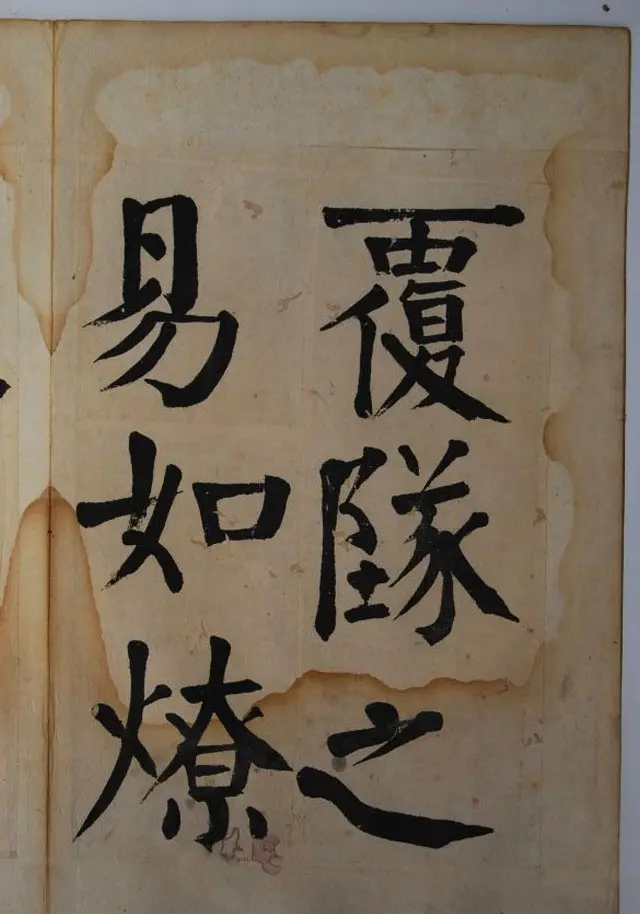 覆墜之
易如燎